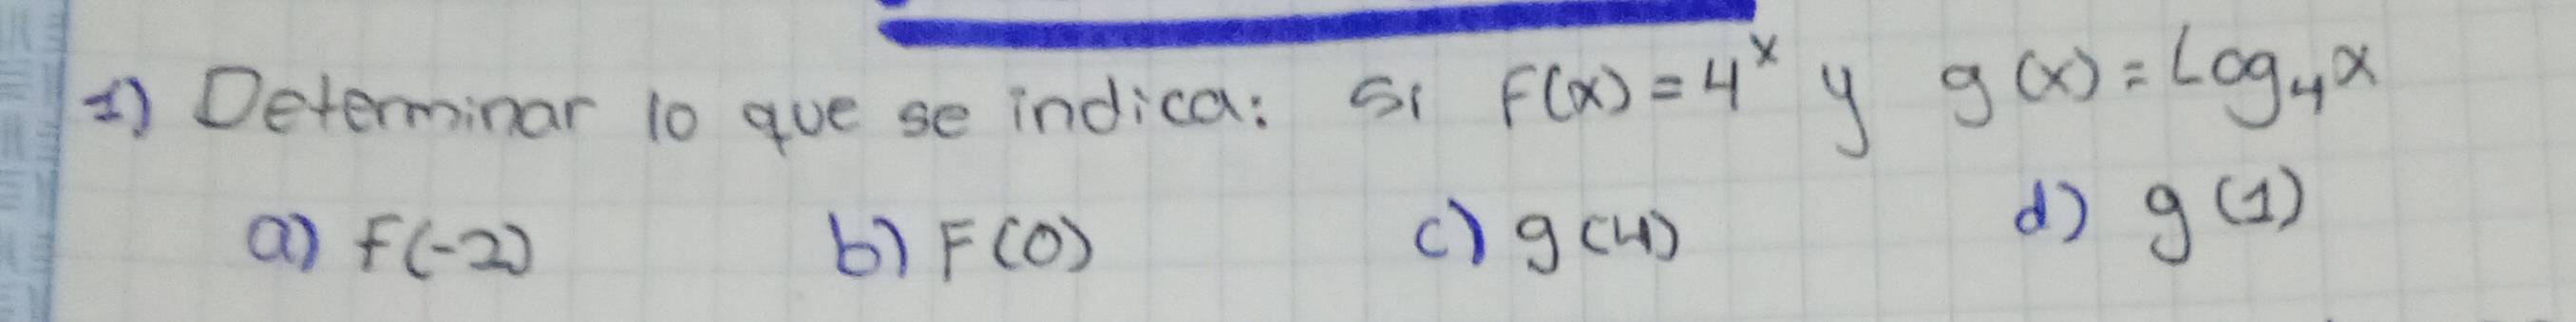 1) Determinar lo que se indica: Si F(x) = 4^x y g(x) = Log₄x
a) f(-2) b) F(0) c) g(4) d) g(1)